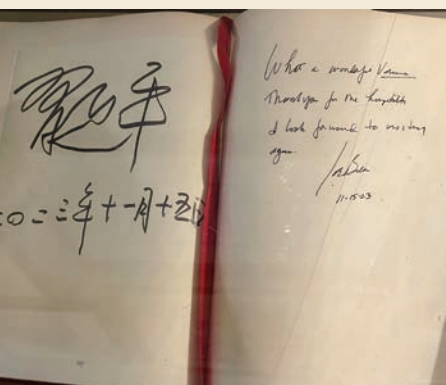 习近平
二〇二三年十一月十五日
What a wonderful Venue
Thank you for the hospitality
I look forward to visiting
again
Joe Biden
11-15-23